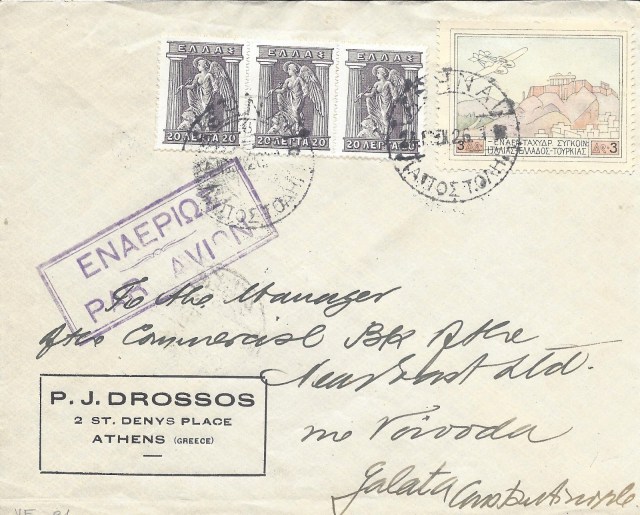 ΕΛΛΑΣ ΕΛΛΑΣ ΕΛΛΑΣ
20 ΛΕΠΤΑ 20 20 ΛΕΠΤΑ 20 20 ΛΕΠΤΑ 20
ΑΘΗΝΑΙ
26
ΑΠΟΣΤΟΛΗ
3 ΕΝΑΕΡ. ΤΑΧΥΔΡ. ΣΥΓΚΟΙΝ. 3
ΔΡ. ΙΤΑΛΙΑΣ-ΕΛΛΑΔΟΣ-ΤΟΥΡΚΙΑΣ ΔΡ.
ΕΝΑΕΡΙΩΣ
PAR AVION
To the Manager
of the Commercial Bk of the
Near East Ltd.
rue Voivoda
Galata Constantinople
P. J. DROSSOS
2 ST. DENYS PLACE
ATHENS (GREECE)